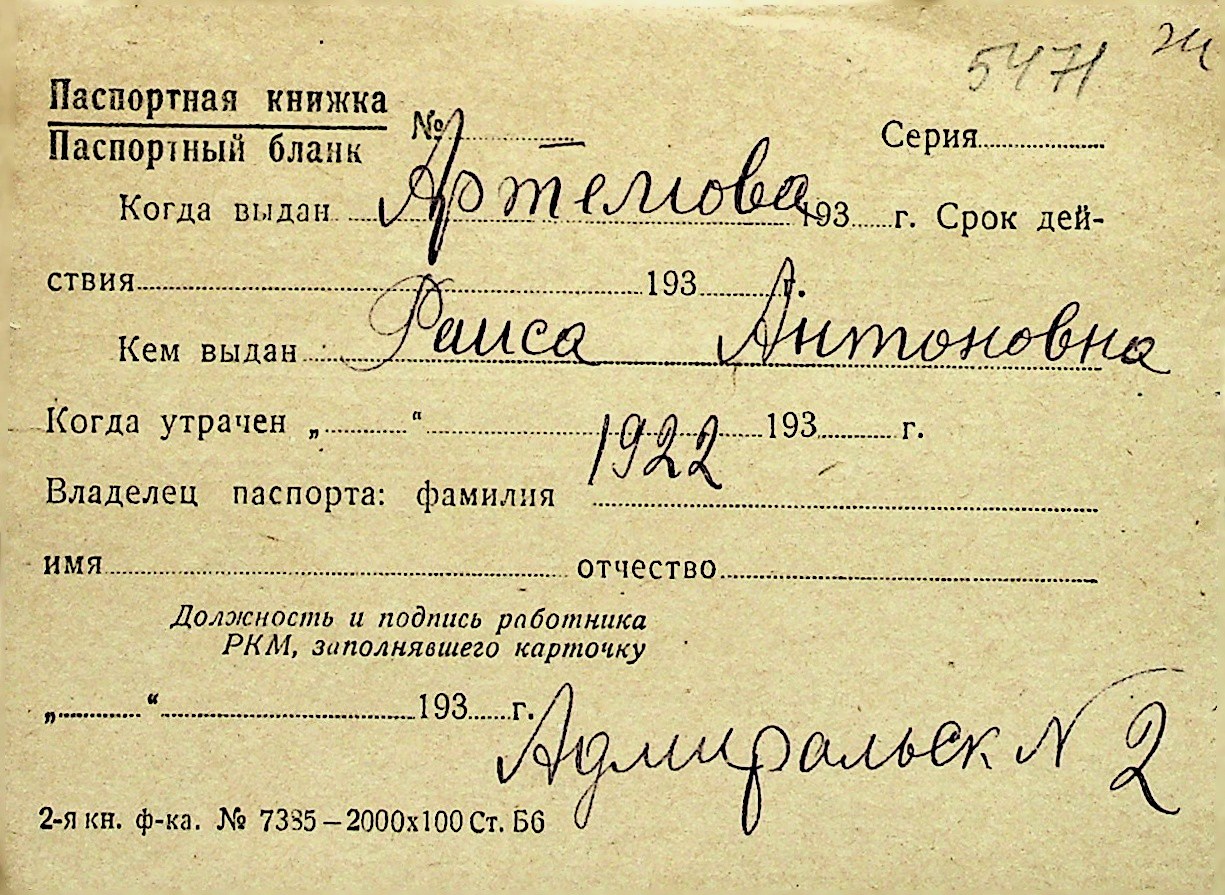 5471 ж
Паспортная книжка
Паспортный бланк № — Серия
Когда выдан Артемова 193 г. Срок дей-
ствия 193 г.
Кем выдан Раиса Антоновна
Когда утрачен „ “ 193 г.
1922
Владелец паспорта: фамилия
имя отчество
Должность и подпись работника
РКМ, заполнявшего карточку
„ “ 193 г.
Адмиральск N 2
2-я кн. ф-ка. № 7385–2000х100 Ст. Б6